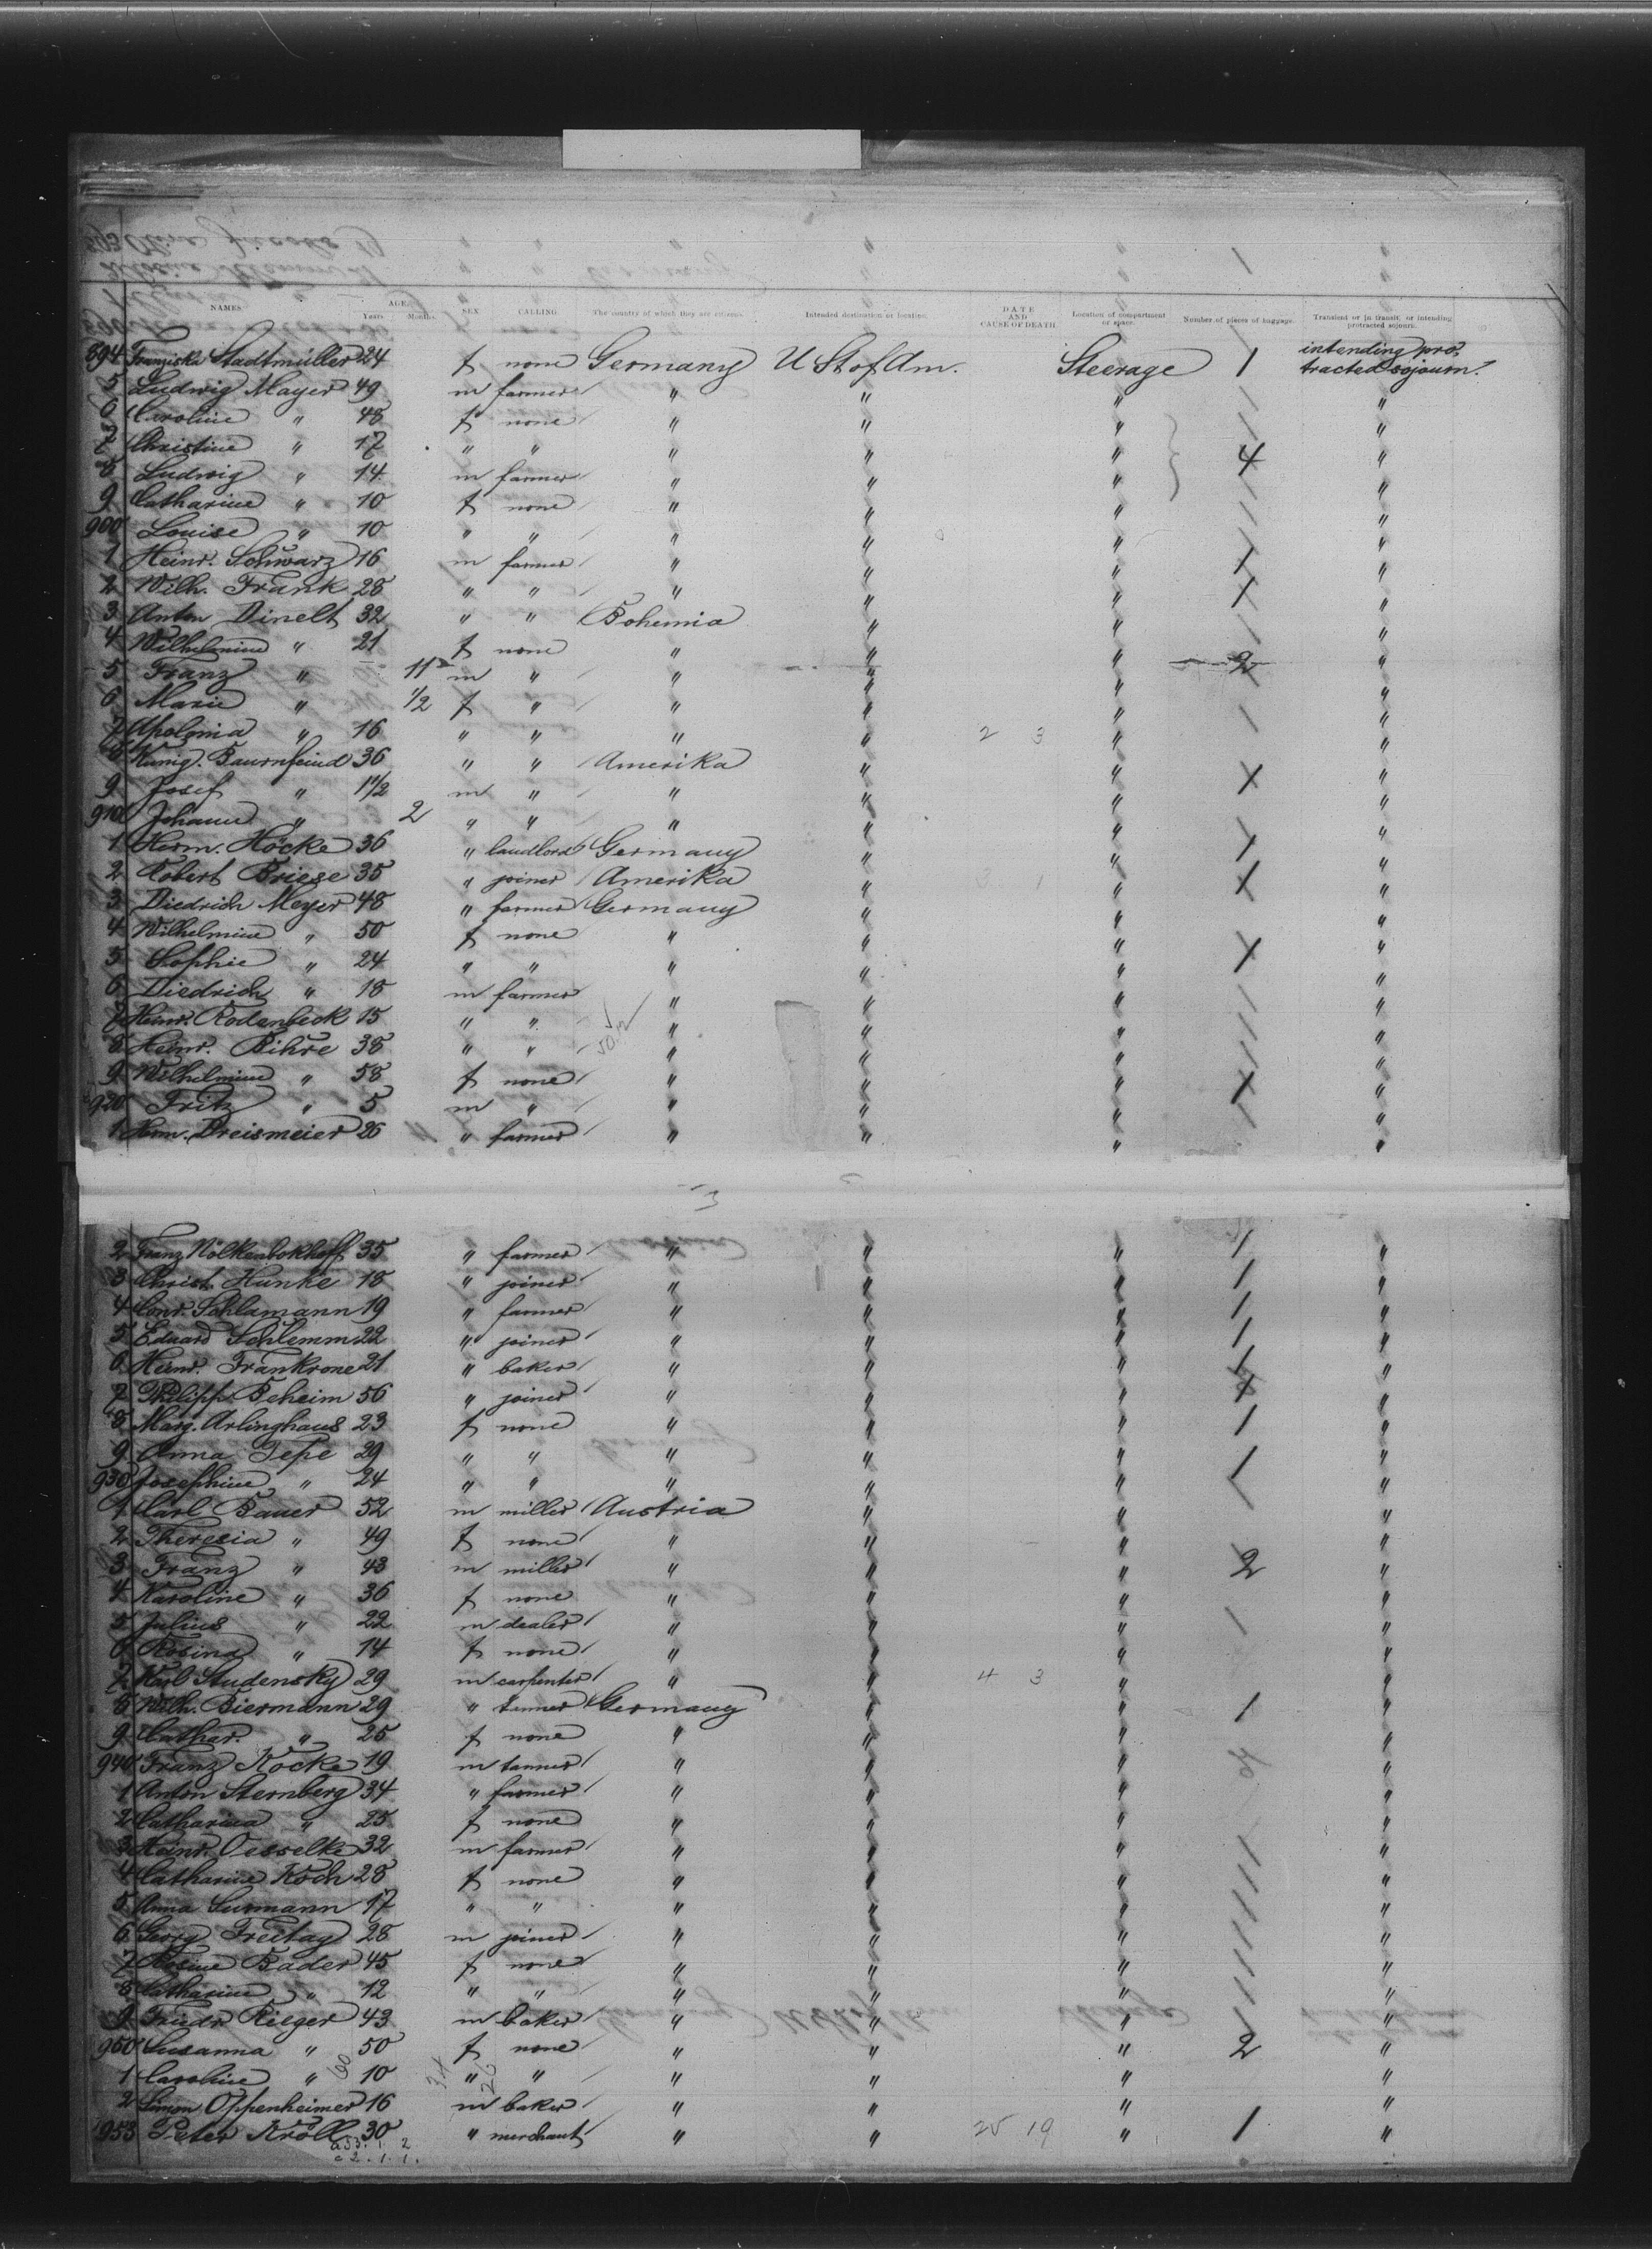 NAMES AGE Years. Months. SEX CALLING The country of which they are citizens. Intended destination or location. DATE AND CAUSE OF DEATH. Location of compartment or space. Number of pieces of baggage. Transient or in transit, or intending protracted sojourn.
894 Franziska Stadtmüller 24 f none Germany U St of Am. Steerage 1 intending pro-
tracted sojourn.
5 Ludwig Mayer 49 m farmer " " " "
6 Caroline " 48 f none " " " "
7 Christine " 17 " " " " " 4 "
8 Ludwig " 14 m farmer " " " "
9 Catharine " 10 f none " " " "
900 Louise " 10 " " " " " "
1 Heinr. Schwarz 16 m farmer " " " 1 "
2 Wilh. Frank 28 " " " " " 1 "
3 Anton Dinelt 32 " " Bohemia " " "
4 Wilhelmine " 21 f none " " " 2 "
5 Franz " 11 m " " " " "
6 Marie " 1/2 f " " " " "
7 Apolonia " 16 " " " " 2 3 " "
8 Kunig. Baurnfeind 36 " " Amerika " " 1 "
9 Josef " 1 1/2 m " " " " "
910 Johann " 2 " " " " " "
1 Herm. Höcke 36 " landlord Germany " " 1 "
2 Robert Briese 35 " joiner Amerika " 3 1 " 1 "
3 Diedrich Meyer 48 " farmer Germany " " "
4 Wilhelmine " 50 f none " " " 1 "
5 Sophie " 24 " " " " " "
6 Diedrich " 18 m farmer " " " "
7 Heinr. Rodenbeck 15 " " " " " "
8 Heinr. Bihre 38 " " " " " "
9 Wilhelmine " 58 f none " " " 1 "
920 Fritz " 5 m " " " " "
1 Herm. Dreismeier 26 " farmer " " " "
2 Franz Nölkenbokhoff 35 " farmer " " " 1 "
3 Christ. Hunke 18 " joiner " " " 1 "
4 Conr. Schlamann 19 " farmer " " " 1 "
5 Eduard Schlemm 22 " joiner " " " 1 "
6 Heinr. Frankrone 21 " baker " " " 1 "
7 Philipp Beheim 56 " joiner " " " 1 "
8 Marg. Arlinghaus 23 f none " " " 1 "
9 Anna Tepe 29 " " " " " 1 "
930 Josephine " 24 " " " " " "
1 Carl Bauer 52 m miller Austria " " "
2 Theresia " 49 f none " " " "
3 Franz " 43 m miller " " " 2 "
4 Karoline " 36 f none " " " "
5 Julius " 22 m dealer " " " "
6 Rosina " 14 f none " " " "
7 Karl Studensky 29 m carpenter " " 4 3 " "
8 Wilh. Biermann 29 " tanner Germany " " 1 "
9 Cathar. " 25 f none " " " "
940 Franz Kocke 19 m tanner " " " "
1 Anton Sternberg 34 " farmer " " " "
2 Catharina " 25 f none " " " "
3 Heinr. Oesselke 32 m farmer " " " "
4 Catharine Koch 28 f none " " " "
5 Anna Surmann 17 " " " " " "
6 Georg Freitag 28 m joiner " " " "
7 Rosine Bader 45 f none " " " "
8 Catharine " 12 " " " " " "
9 Friedr. Rieger 43 m baker " " " "
950 Susanna " 50 f none " " " 2 "
1 Caroline " 10 " " " " " "
2 Simon Oppenheimer 16 m baker " " " "
953 Peter Kröll 30 " merchant " " 25 19 " 1 "